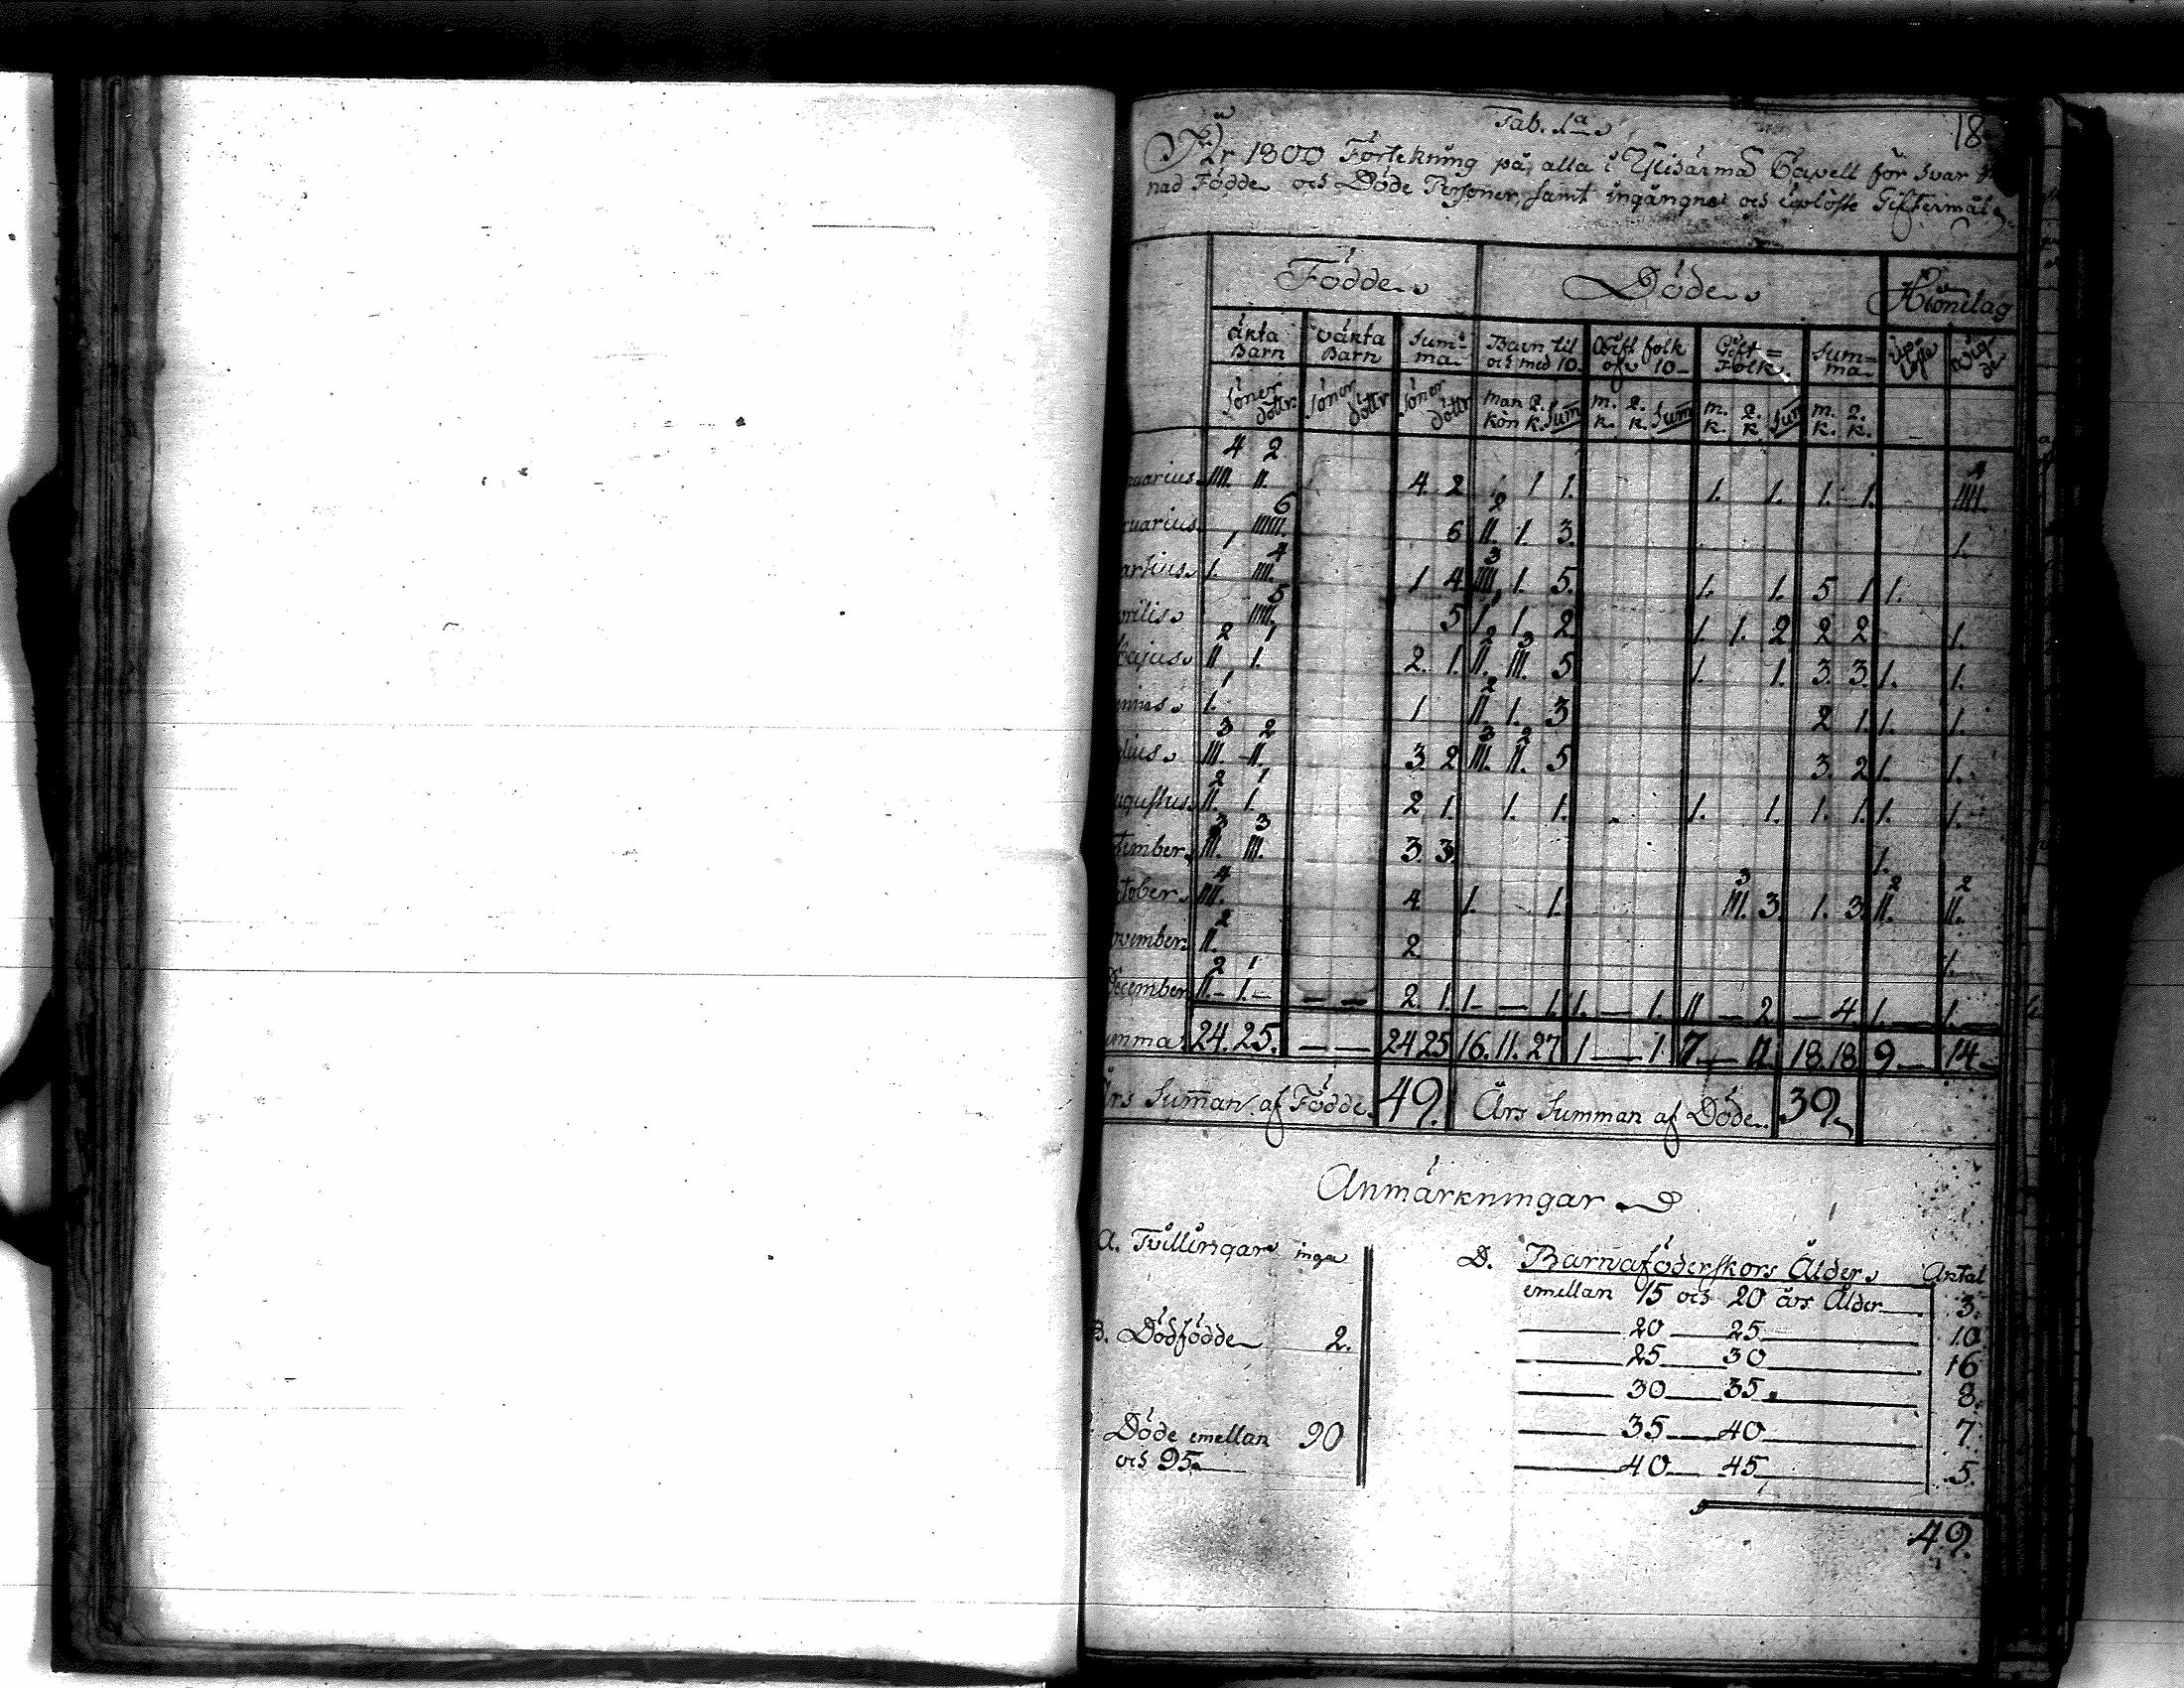 Tab. 1a
18
År 1800 Förtekning på alla i Ylikärma Capell för hvar
nad Födde och Döde Personer, samt ingångne och uplöste Giftermål.
Födde Döde Hionelag
äkta Barn oäkta Barn Summa Barn til och med 10. Ogift folk ofv 10 Gift Folk. Summa Uplöste Vigde
söner döttr. söner döttr söner döttr man kön 2. k. Sum m. k. 2. k. Sum m. k. 2. k Sum m. k. 2. k.
4 2 4
nuarius. IIII. II. 4. 2 1 1. 1. 1. 1. 1. IIII.
6 2
ruarius. IIIIII. 6 II. 1. 3. 1.
1 4 3
artius. 1. IIII. 1 4 IIII 1. 5. 1. 1. 5 1 1.
5 1
prilis IIIII. 5 1. 1. 2 1 1. 2 2 2 1.
2 1 2 3
Majus II 1. 2. 1. II. III. 5 1. 1. 3. 3. 1. 1.
1 2
unius 1. 1 II. 1. 3 2 1. 1. 1.
3 2 3 2
ulius III. II. 3. 2 III. II. 5 3. 2 1. 1.
2 1
ugustus. II. 1. 2 1. 1. 1. 1. 1. 1. 1. 1. 1.
3 3
tember. III. III. 3. 3. 1.
4 3 2 2
ctober IIII. 4 1. 1. III. 3. 1. 3. II. II.
2
ovember. II. 2 1.
2 1
December II.– 1.– — — 2. 1. 1– — 1. 1. — 1. II — 2 — 4. 1. — 1. —
umma. 24. 25. — — 24 25 16. 11. 27 1 — 1. 7 — 11. 18. 18. 9 — 14.
Års Summan af Födde. 49. Års Summan af Döde. 39.
Anmärkningar
A. Tvillingar inga
B. Dödfödde 2.
Döde emellan 90
och 95.
D. Barnaföderskors Ålder Antal
emellan 15 och 20 års Ålder 3.
20 — 25 10.
25 — 30 16
30 — 35 8.
35 — 40 7.
40 — 45 5.
49.